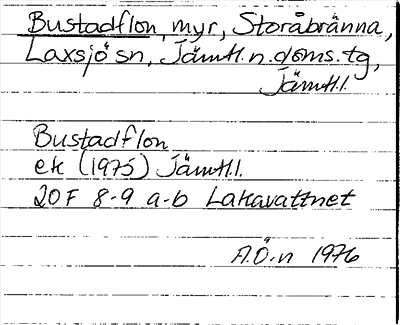 Bustadflon, myr, Storåbränna,
Laxsjö sn, Jämtl. n. doms. tg,
Jämtl.l.
Bustadflon
ek (1975) Jämtl.l.
20F 8-9 a-b Lakavattnet
A.Ö-n 1976